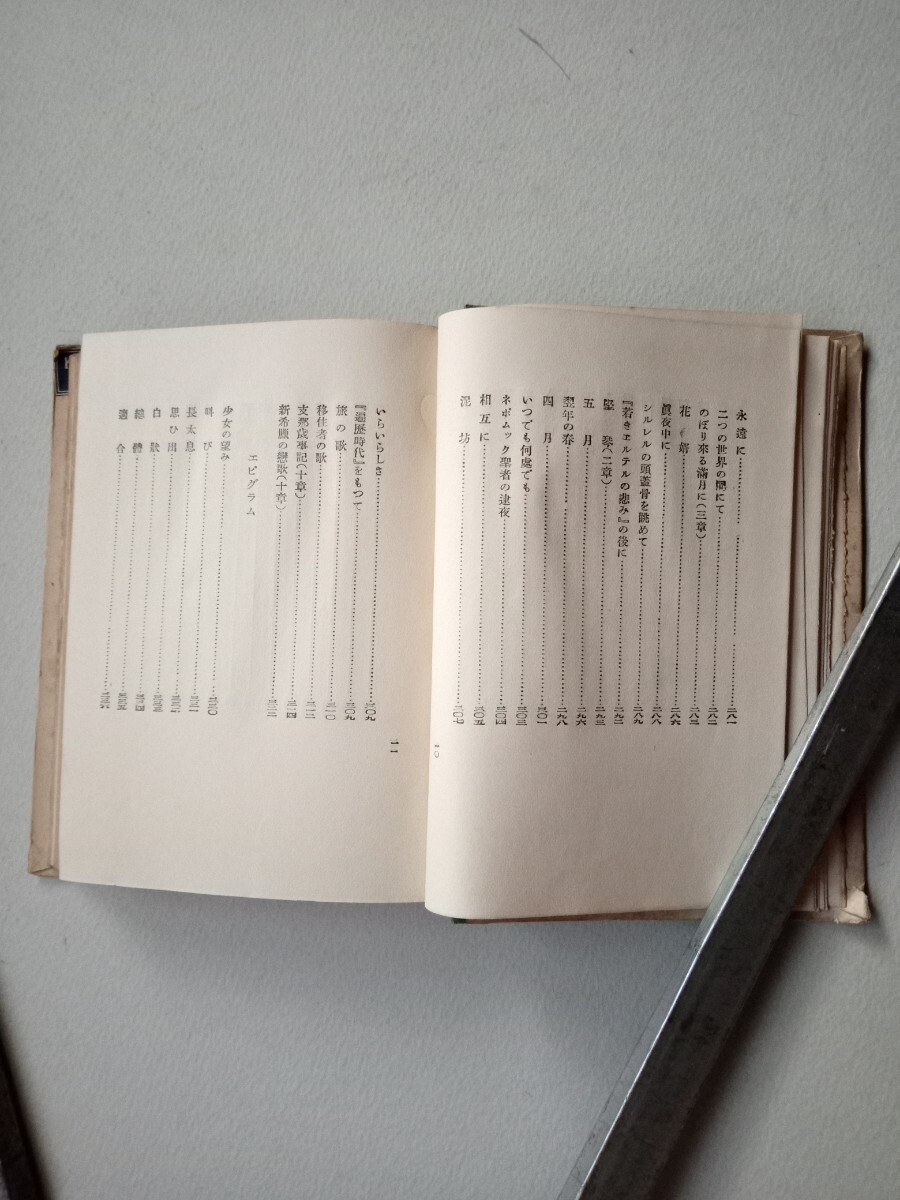 永遠に……二八一
二つの世界の間にて……二八二
のぼり來る滿月に(三章)……二八三
花婿……二八六
眞夜中に……二八八
シルレルの頭蓋骨を眺めて……二八九
『若きヱルテルの悲み』の後に……二九二
堅琴(二章)……二九三
五月……二九六
翌年の春……二九八
四月……三〇一
いつでも何處でも……三〇三
ネポムック聖者の逮夜……三〇四
相互に……三〇五
泥坊……三〇七
一〇
いらいらしさ……三〇九
『遍歷時代』をもつて……三〇九
旅の歌……三一〇
移住者の歌……三一二
支那歲事記(十章)……三一四
新希臘の戀歌(十章)……三二二
エピグラム
少女の望み……三三〇
叫び……三三一
長太息……三三二
思ひ出
白狀……三三三
總體……三三四
適合
一一